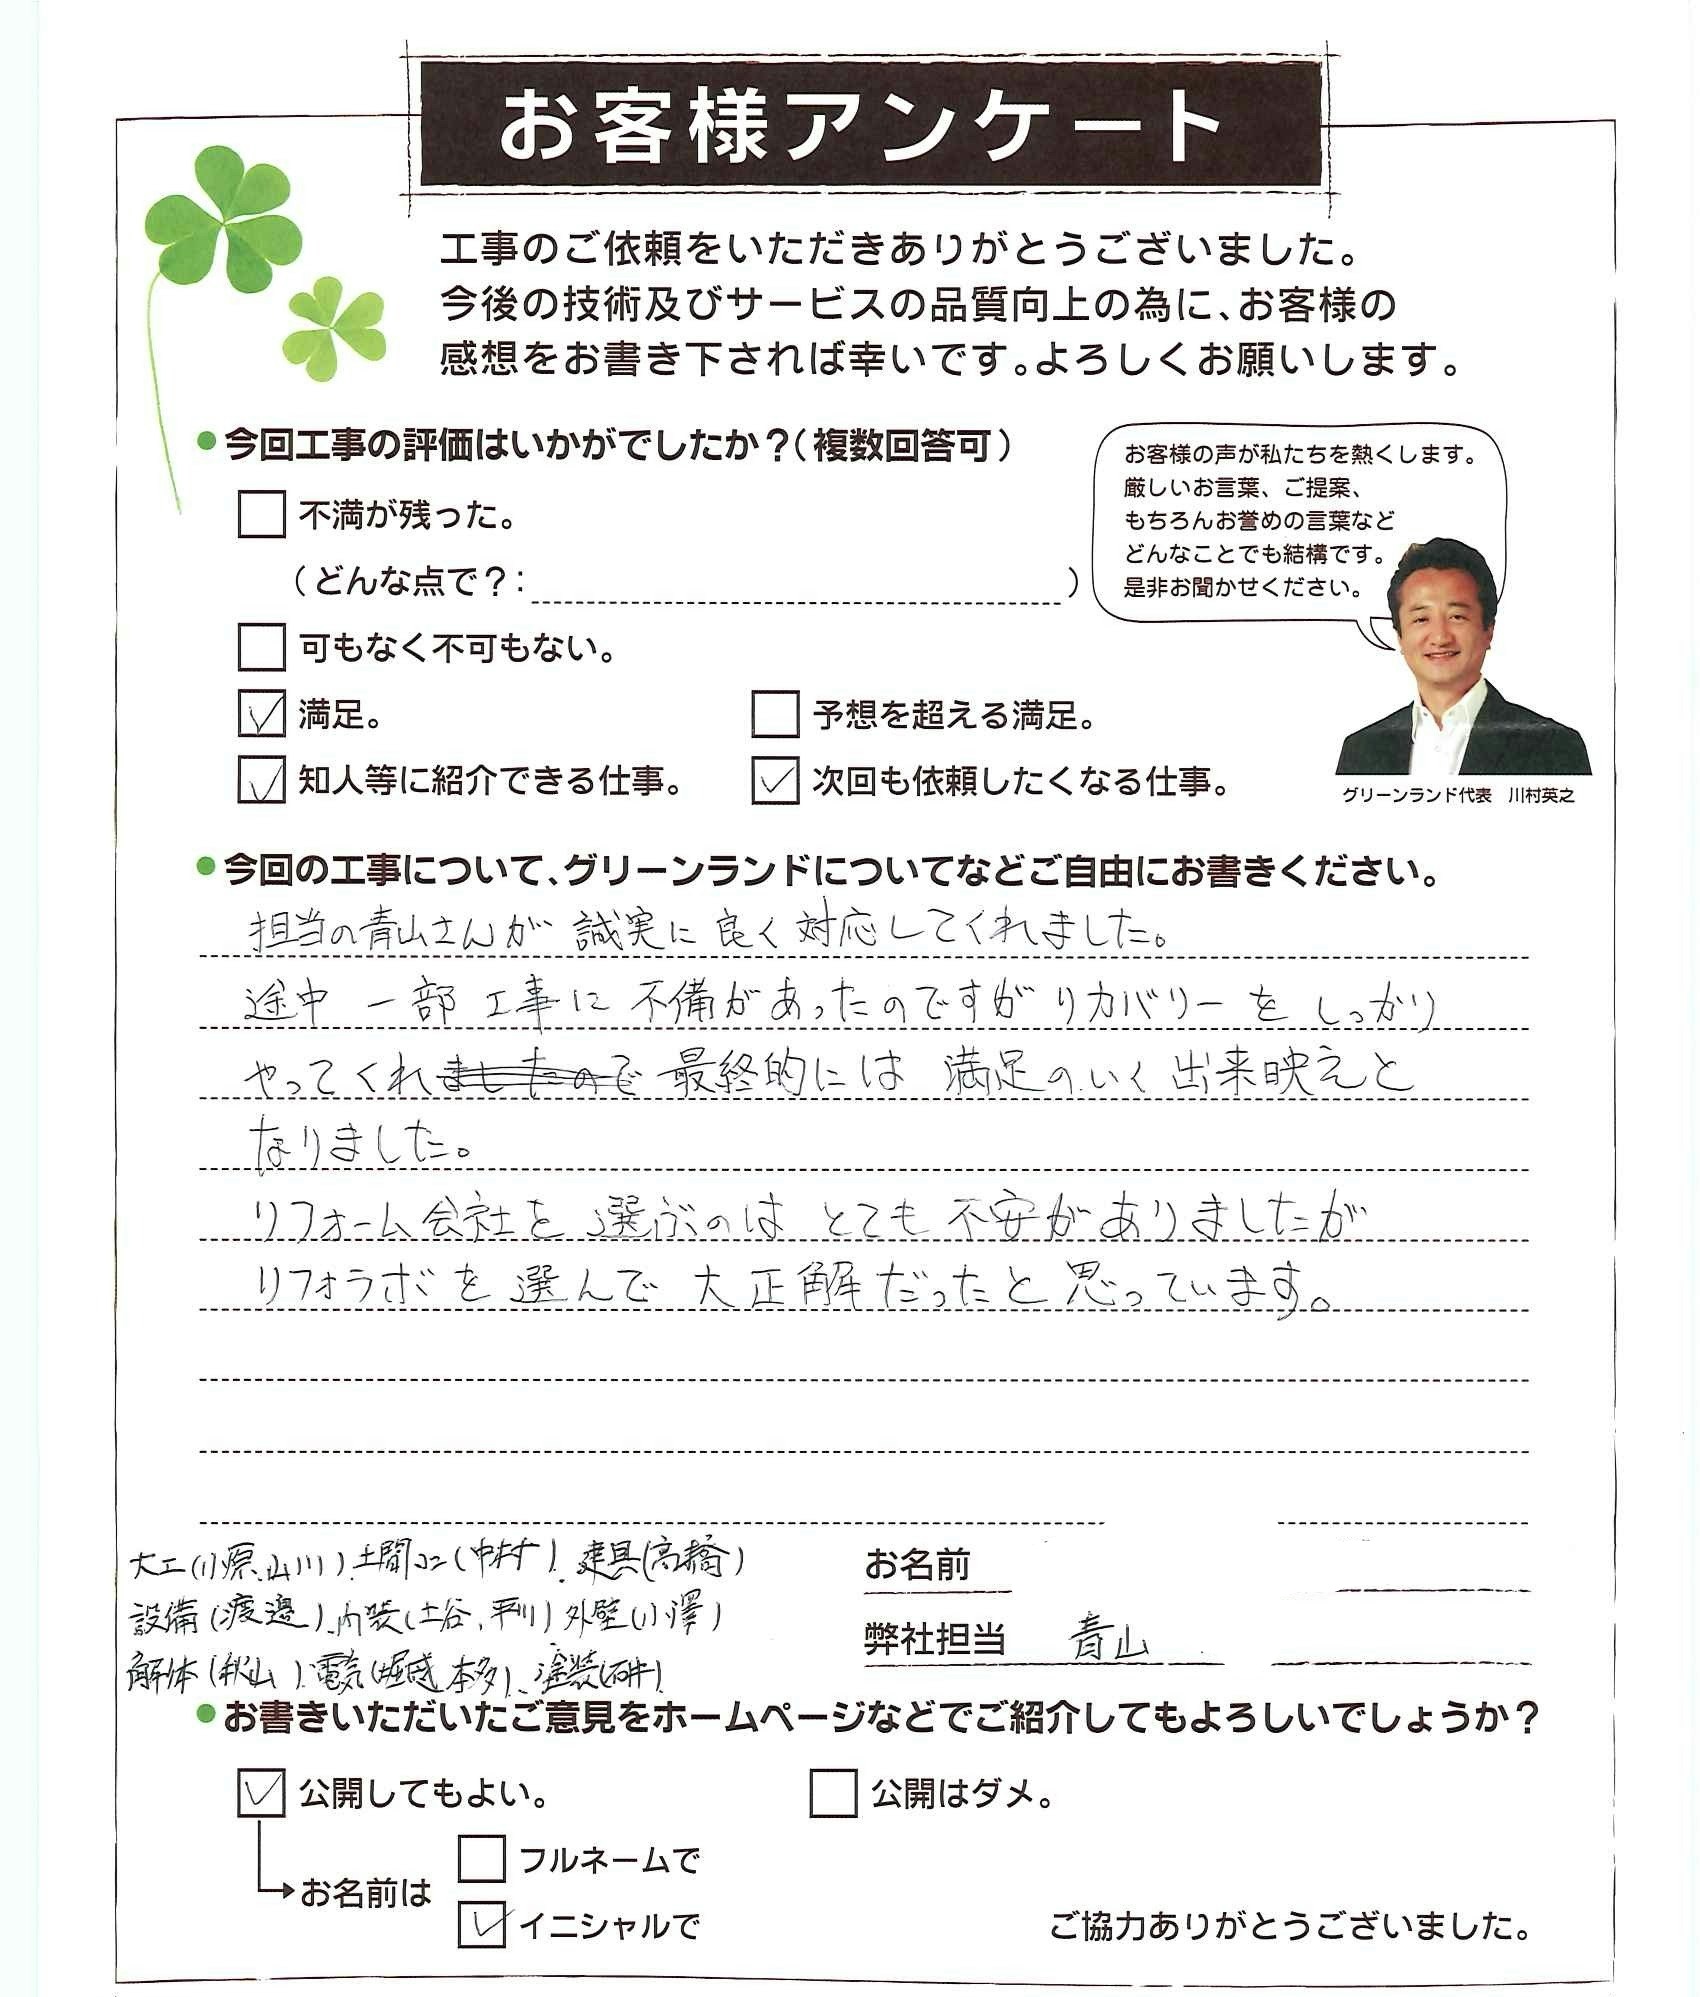 お客様アンケート
工事のご依頼をいただきありがとうございました。
今後の技術及びサービスの品質向上の為に、お客様の
感想をお書き下されば幸いです。よろしくお願いします。
●今回工事の評価はいかがでしたか？（複数回答可）
不満が残った。
（どんな点で？：　）
可もなく不可もない。
満足。
予想を超える満足。
知人等に紹介できる仕事。
次回も依頼したくなる仕事。
お客様の声が私たちを熱くします。
厳しいお言葉、ご提案、
もちろんお誉めの言葉など
どんなことでも結構です。
是非お聞かせください。
グリーンランド代表　川村英之
●今回の工事について、グリーンランドについてなどご自由にお書きください。
担当の青山さんが 誠実に 良く 対応してくれました。
途中 一部 工事に 不備があったのですが リカバリーを しっかり
やってくれましたので 最終的には 満足のいく 出来映えと
なりました。
リフォーム会社を 選ぶのは とても 不安がありましたが
リフォラボを 選んで 大正解だったと 思っています。
大工(小原、山川)、土間コン(中村)、建具(高橋)
設備(渡邉)、内装(土谷、平川) 外壁(小澤)
解体(秋山)、電気(堀成、本多)、塗装(石井)
お名前
弊社担当 青山
●お書きいただいたご意見をホームページなどでご紹介してもよろしいでしょうか？
公開してもよい。
公開はダメ。
お名前は
フルネームで
イニシャルで
ご協力ありがとうございました。